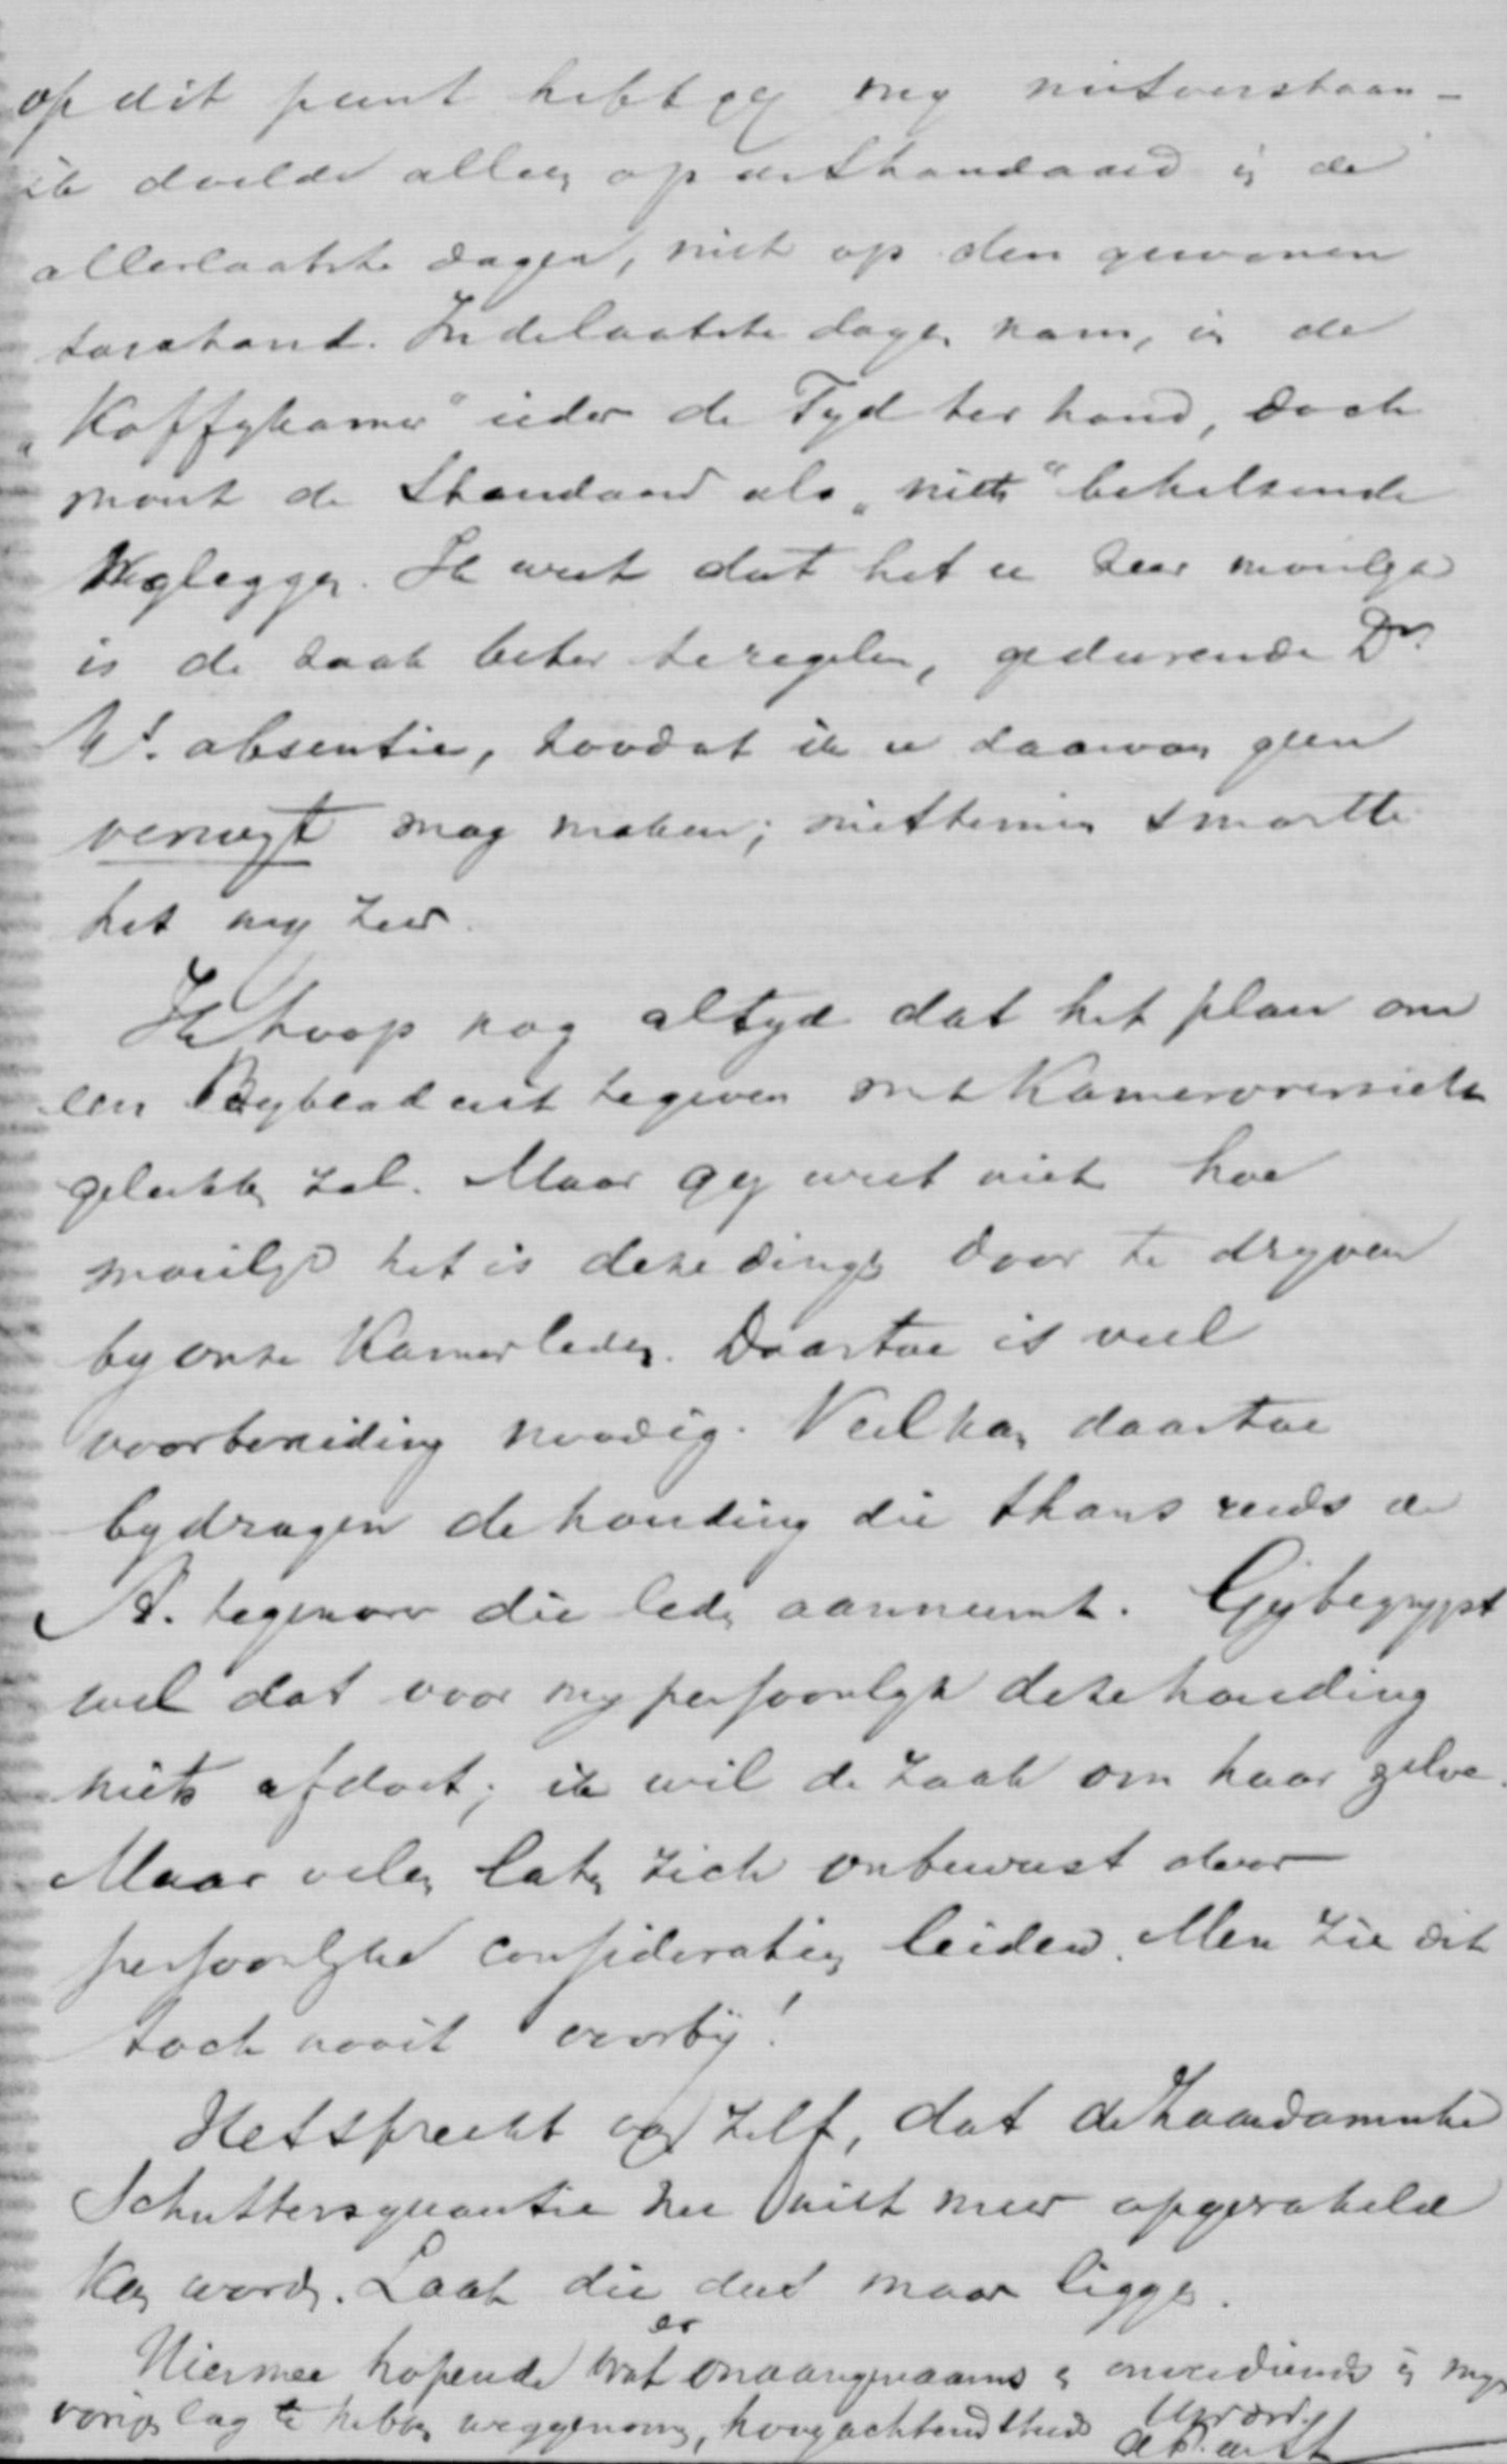 op dit punt hebt gy my misverstaan -
ik doelde alleen op de Standaard in de
allerlaatste dagen, niet op den gewonen
toestand. In de laatste dagen nam, in de
"Koffykamer" ieder de Tyd ter hand, doch
moest de Standaard als "niets" behelzende
Wegleggen. Ik weet dat het u zeer moeilyk
is de zaak beter te regelen, gedurende Dr.
K's. absentie, zoodat ik u daarvan geen
verwyt mag maken; niettemin smartte
het my zeer.
Ik hoop nog altyd dat het plan om
een Byblad uit te geven met Kameroverzicht
gelukken zal. Maar gy weet niet hoe
moeilyk het is deze dingen door te dryven
by onze Kamerleden. Daartoe is veel
voorbereiding noodig. Veel kan daartoe
bydragen de houding die thans reeds de
St. tegenover die leden aanneemt. Gy begrypt
wel dat voor my persoonlyk deze houding
niets afdoet; ik wil de zaak om haar zelve.
Maar velen laten zich onbewust door
persoonlyke consideratien leiden. Men zie dit
toch nooit voorby!
Het spreekt van zelf, dat de Zaandamsche
Schutterskwestie nu niet meer opgerakeld
kan worden. Laat die dus maar liggen.
Hiermee hopende wat er onaangenaams en in myn
vorige lag te hebben weggenomen, hoogachtend steeds